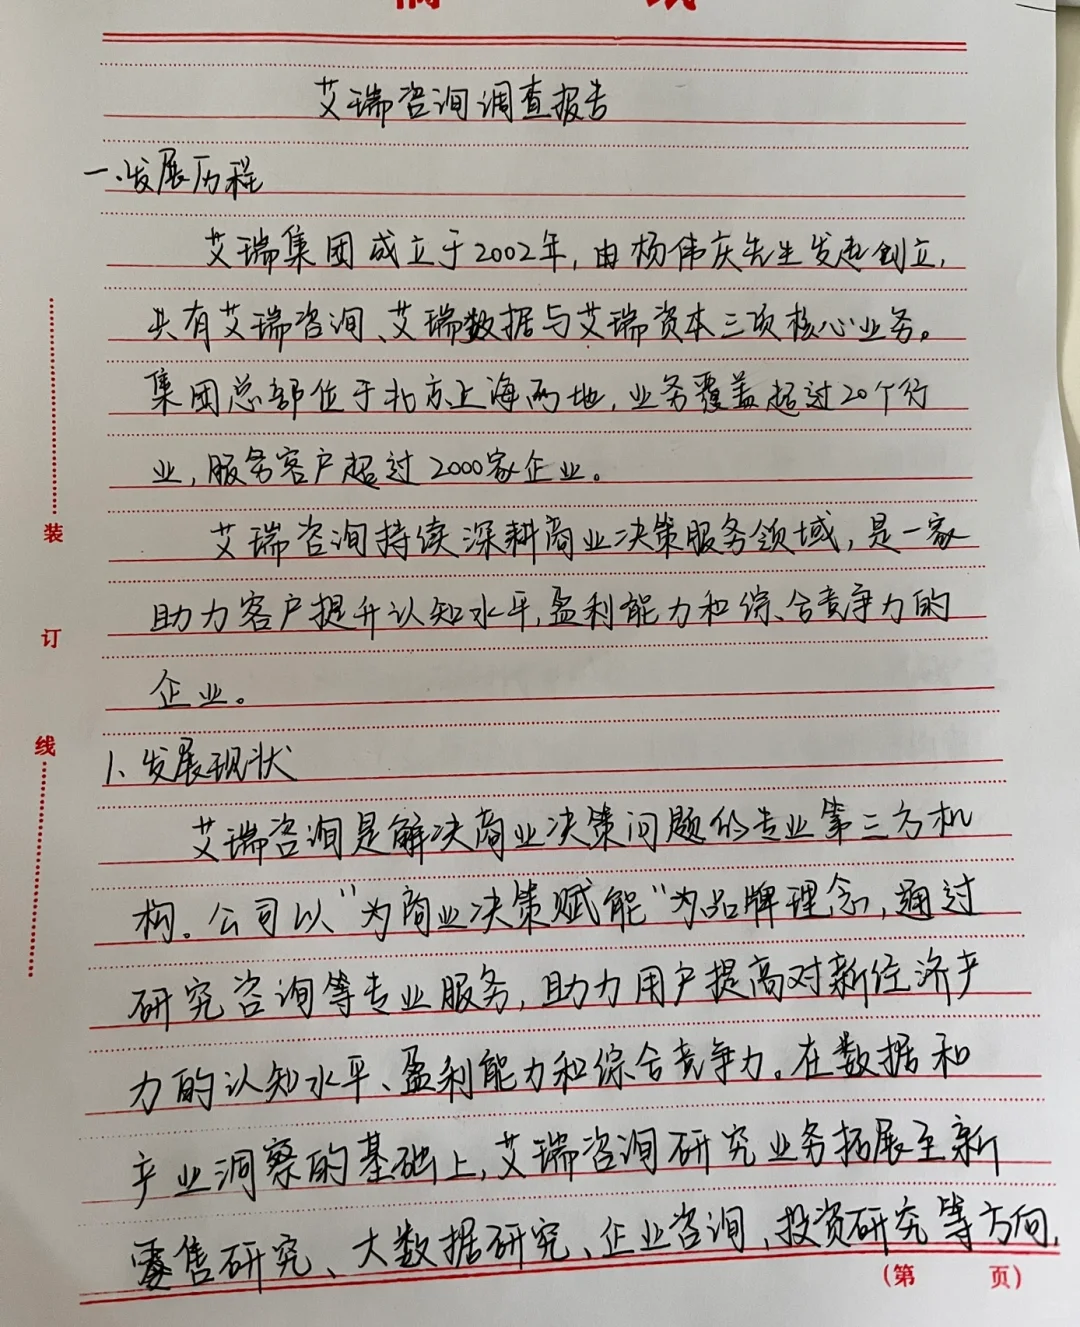 艾瑞咨询调查报告
一、发展历程
艾瑞集团成立于2002年,由杨伟庆先生发起创立,
共有艾瑞咨询、艾瑞数据与艾瑞资本三项核心业务。
集团总部位于北京上海两地,业务覆盖超过20个行
业,服务客户超过2000家企业。
艾瑞咨询持续深耕商业决策服务领域,是一家
助力客户提升认知水平,盈利能力和综合竞争力的
企业。
1、发展现状
艾瑞咨询是解决商业决策问题的专业第三方机
构。公司以“为商业决策赋能”为品牌理念,通过
研究咨询等专业服务,助力用户提高对新经济产
力的认知水平、盈利能力和综合竞争力。在数据和
产业洞察的基础上,艾瑞咨询研究业务拓展至新
零售研究、大数据研究、企业咨询、投资研究等方向,
装
订
线
(第 页)